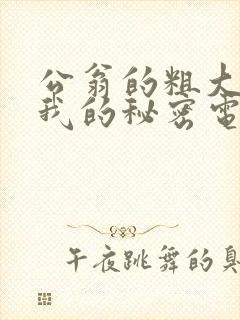 公翁的粗大
我的秘密电
午夜跳舞的臭